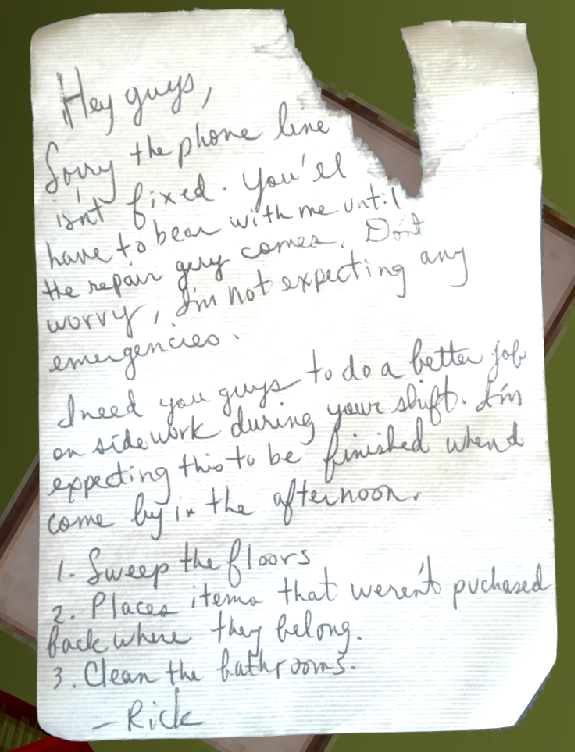 Hey guys,
Sorry the phone line
isn't fixed. You'll
have to bear with me until
the repair guy comes. Don't
worry, I'm not expecting any
emergencies.
I need you guys to do a better job
on sidework during your shift. I'm
expecting this to be finished when I
come by in the afternoon.
1. Sweep the floors
2. Places items that weren't puchased
back where they belong.
3. Clean the bathrooms.
- Rick